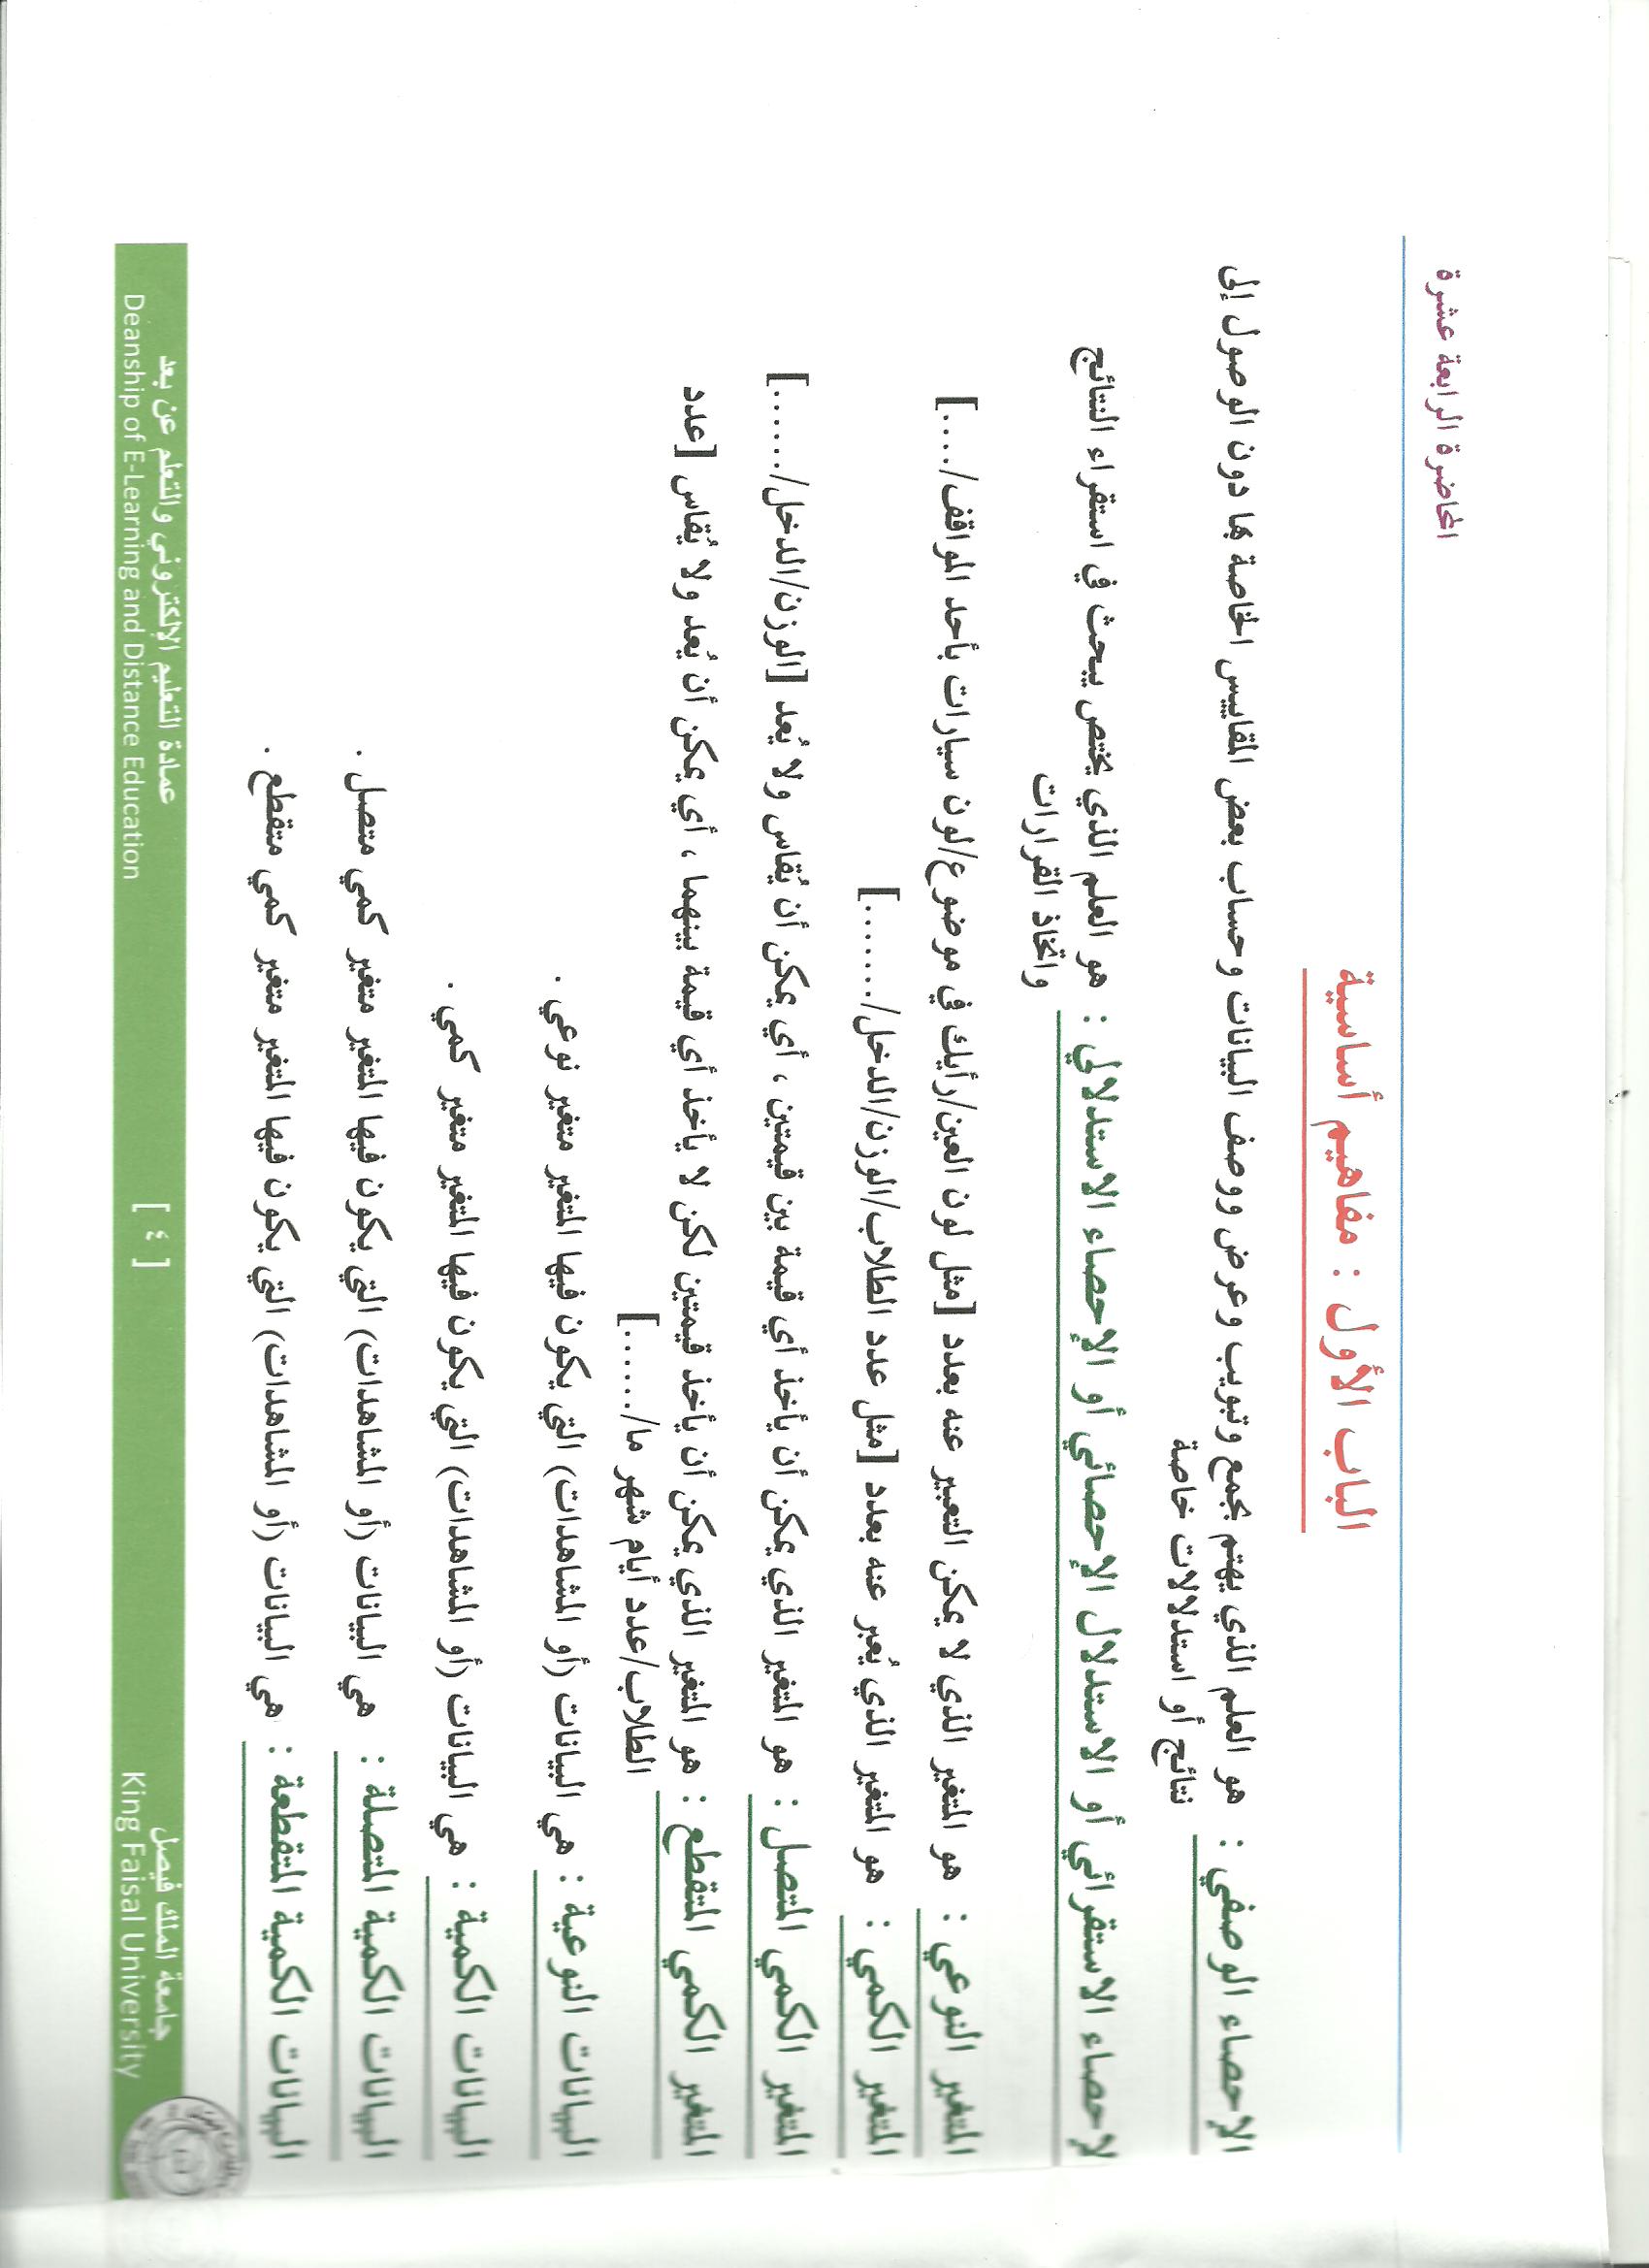 المحاضرة الرابعة عشرة
الباب الأول : مفاهيم أساسية
الإحصاء الوصفي : هو العلم الذي يهتم بجمع وتبويب وعرض ووصف البيانات وحساب بعض المقاييس الخاصة بها دون الوصول إلى
نتائج أو استدلالات خاصة
لإحصاء الاستقرائي أو الاستدلال الإحصائي أو الإحصاء الاستدلالي : هو العلم الذي يختص يبحث في استقراء النتائج
واتخاذ القرارات
المتغير النوعي : هو المتغير الذي لا يمكن التعبير عنه بعدد [مثل لون العين/رأيك في موضوع/لون سيارات بأحد المواقف/....]
المتغير الكمي : هو المتغير الذي يُعبر عنه بعدد [مثل عدد الطلاب/الوزن/الدخل/........]
المتغير الكمي المتصل : هو المتغير الذي يمكن أن يأخذ أي قيمة بين قيمتين ، أي يمكن أن يُقاس ولا يُعد [الوزن/الدخل/......]
المتغير الكمي المتقطع : هو المتغير الذي يمكن أن يأخذ قيمتين لكن لا يأخذ أي قيمة بينهما ، أي يمكن أن يُعد ولا يُقاس [عدد
الطلاب/عدد أيام شهر ما/......]
البيانات النوعية : هي البيانات (أو المشاهدات) التي يكون فيها المتغير متغير نوعي .
البيانات الكمية : هي البيانات (أو المشاهدات) التي يكون فيها المتغير متغير كمي .
البيانات الكمية المتصلة : هي البيانات (أو المشاهدات) التي يكون فيها المتغير متغير كمي متصل .
البيانات الكمية المتقطعة : هي البيانات (أو المشاهدات) التي يكون فيها المتغير متغير كمي متقطع .
جامعة الملك فيصل
King Faisal University
[ ٤ ]
عمادة التعليم الإلكتروني والتعلم عن بعد
Deanship of E-Learning and Distance Education